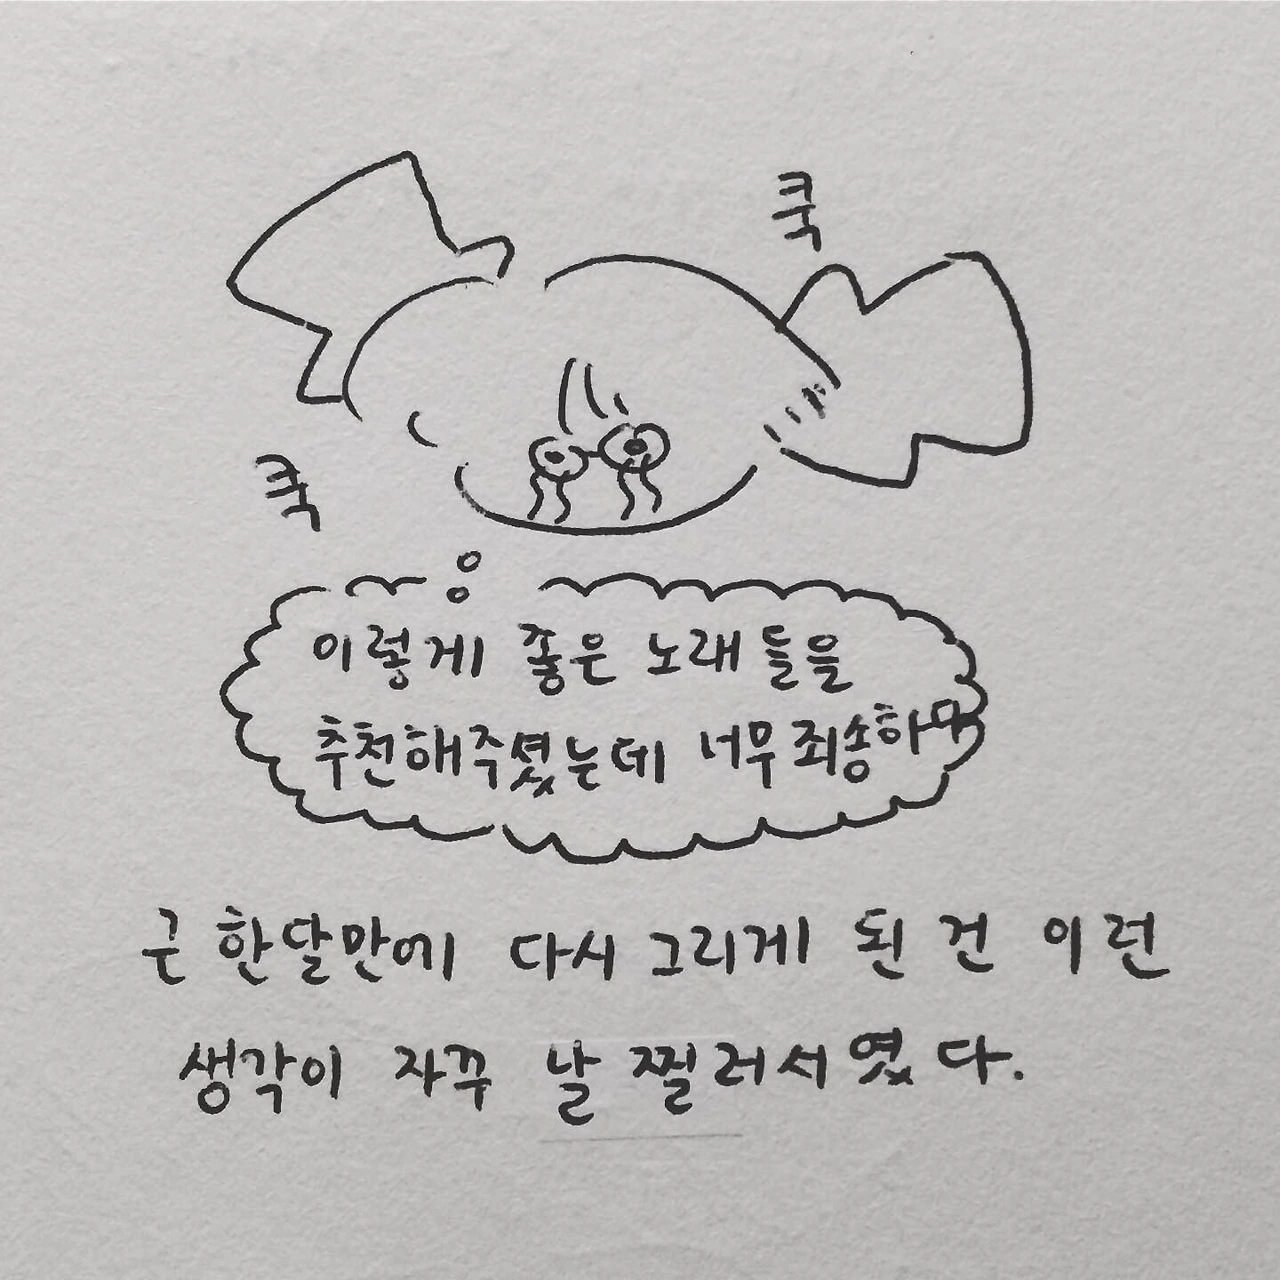 쿡
쿡
이렇게 좋은 노래들을
추천해주셨는데 너무 죄송하다
근 한달만에 다시 그리게 된 건 이런
생각이 자꾸 날 찔러서였다.